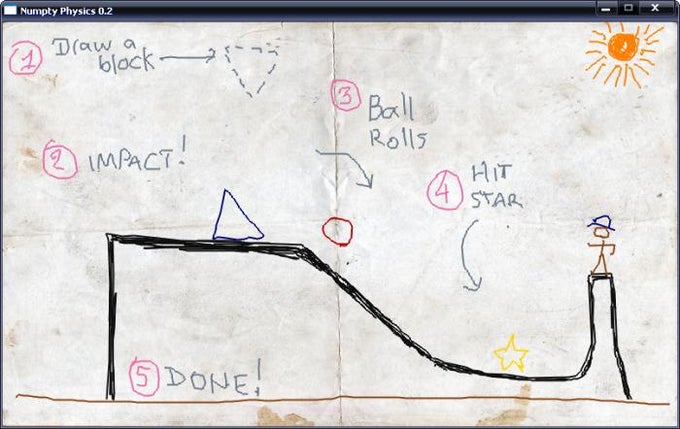 Numpty Physics 0.2
1 Draw a
block
3 Ball
Rolls
2 IMPACT!
4 HIT
STAR
5 DONE!